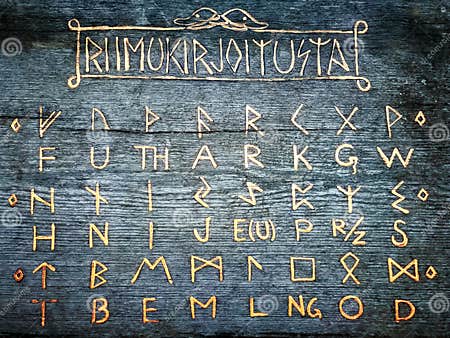 RIIMUKIRJOITUSTA
ᚠ ᚢ ᚦ ᚨ ᚱ ᚲ ᚷ ᚹ
F U TH A R K G W
ᚺ ᚾ ᛁ ᛃ ᛇ ᛈ ᛉ ᛊ
H N I J E(U) P R/Z S
ᛏ ᛒ ᛖ ᛗ ᛚ ᛜ ᛟ ᛞ
T B E M L NG O D